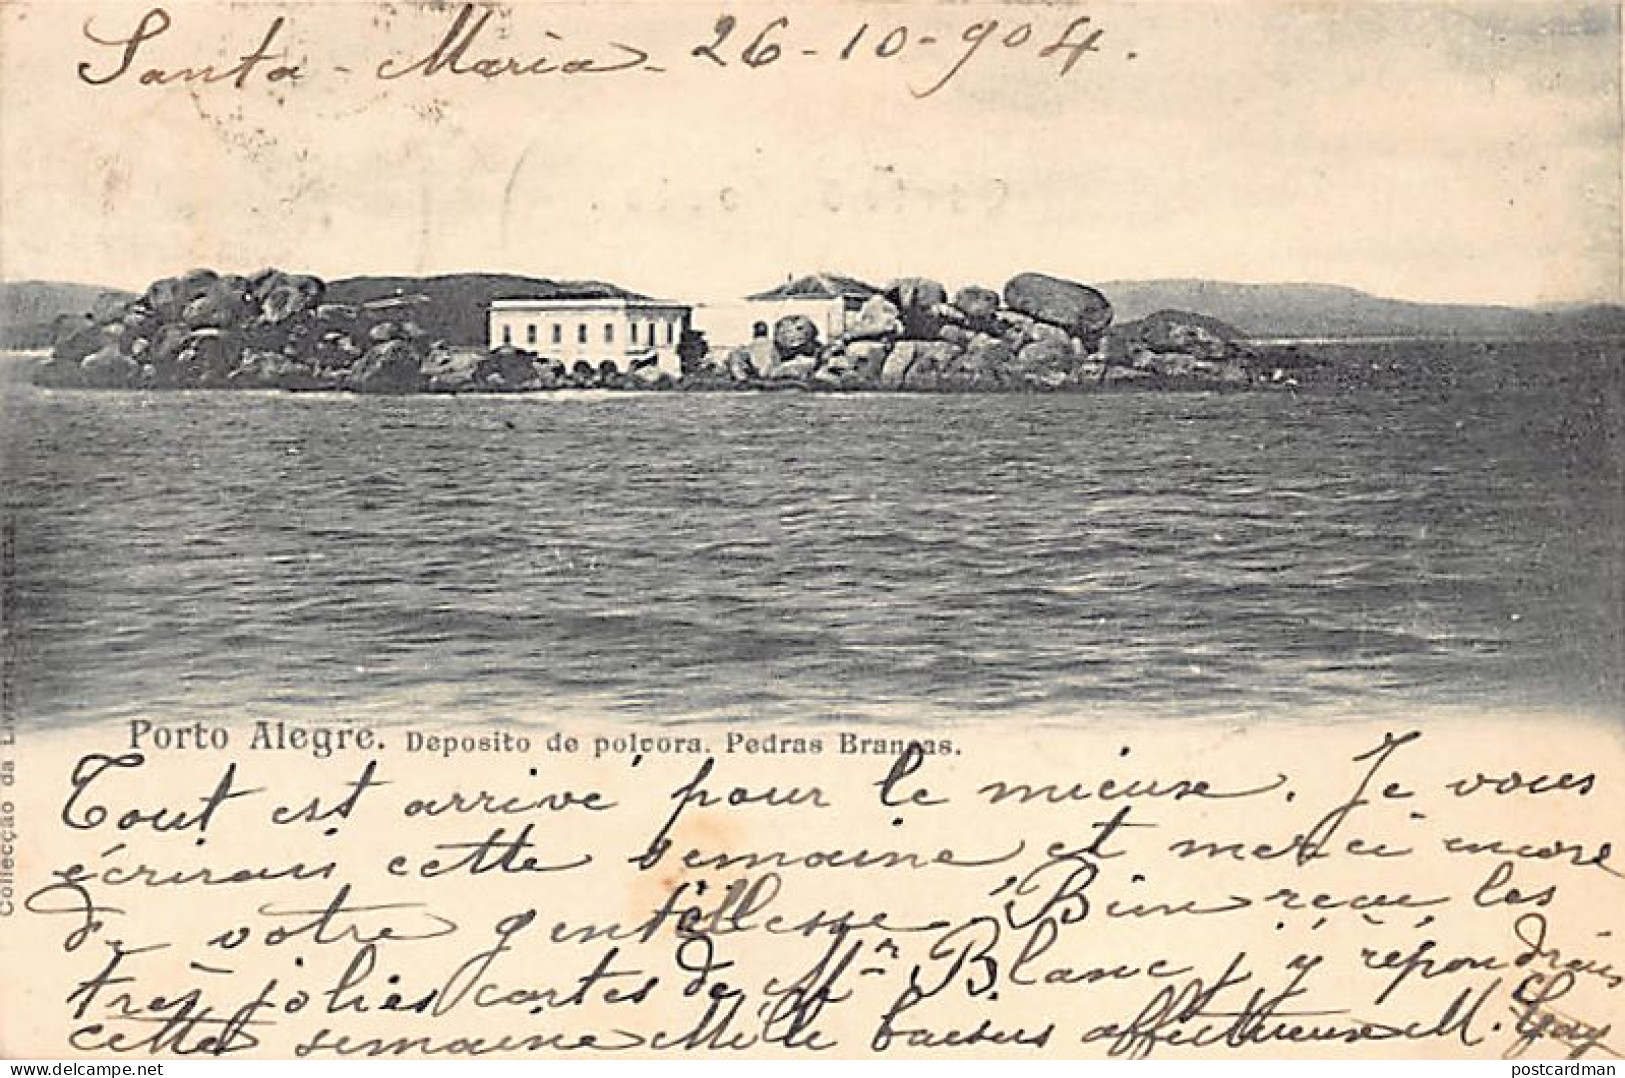 Santa-Maria - 26-10-904.
Porto Alegre. Deposito de polvora. Pedras Brancas.
Collecção da
Tout est arrivé pour le mieux. Je vous
écrirais cette semaine et merci encore
de votre gentillesse. Bien reçu les
très jolies cartes de Mr Blanc, j'y répondrais
cette semaine Mille baisers affectueux M. Gay
postcardman